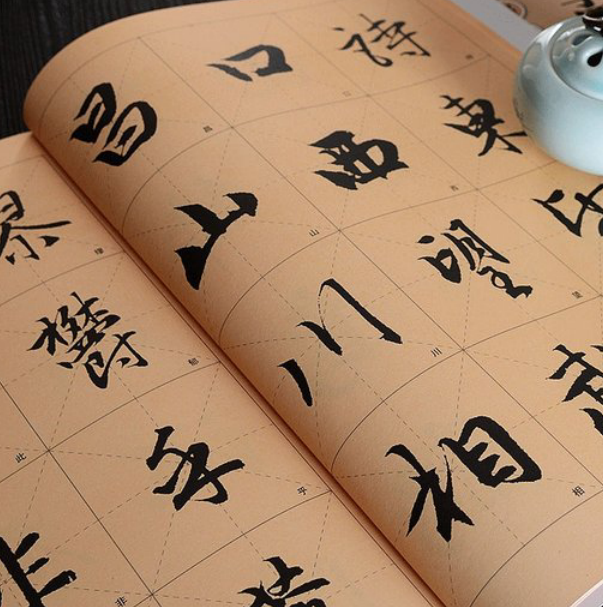 詩東
口西望武
昌山川相
繆鬱乎
此非